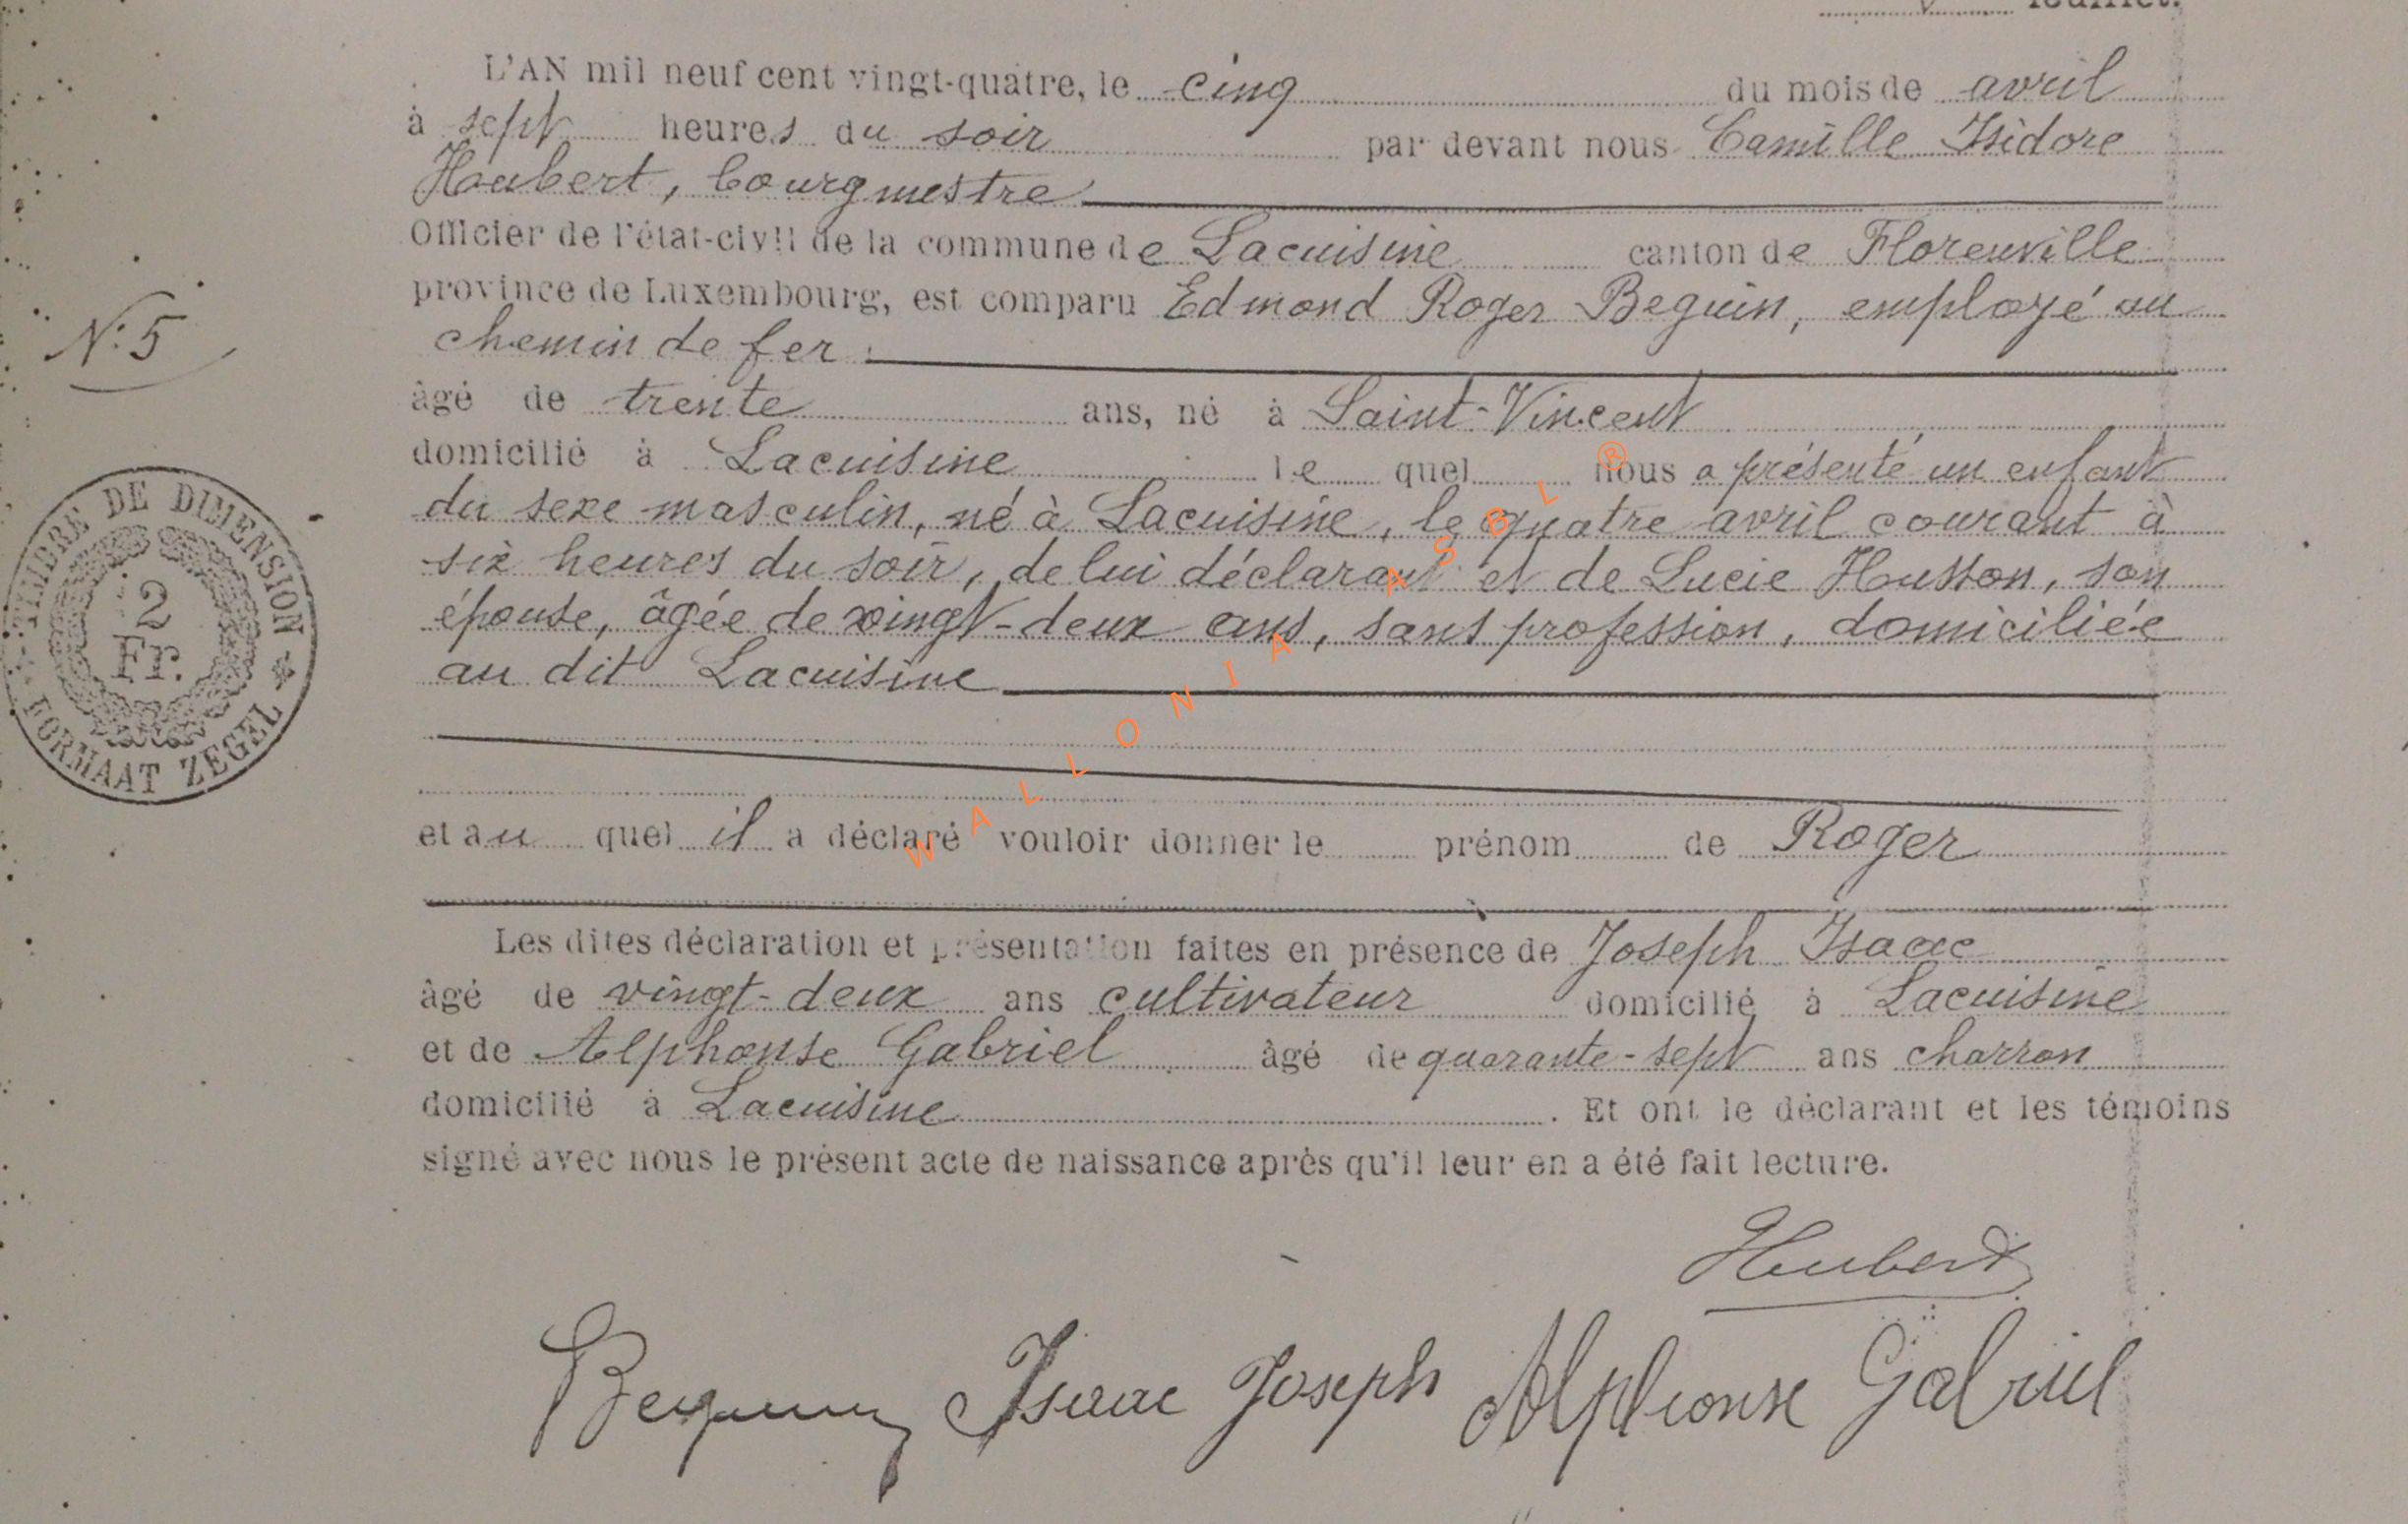 feuillet.
L'AN mil neuf cent vingt-quatre, le cinq du mois de avril
à sept heures du soir par devant nous Camille Isidore
Houbert, bourgmestre
Officier de l'état-civil de la commune de Lacuisine canton de Florenville
province de Luxembourg, est comparu Edmond Roger Beguin, employé au
chemin de fer
N° 5
âgé de trente ans, né à Saint-Vincent
domicilié à Lacuisine le quel nous a présenté un enfant
du sexe masculin, né à Lacuisine, le quatre avril courant à
six heures du soir, de lui déclarant et de Lucie Husson, son
épouse, âgée de vingt-deux ans, sans profession, domiciliée
au dit Lacuisine
TIMBRE DE DIMENSION
2
Fr.
FORMAAT ZEGEL
WALLONIA ASBL ®
et au quel il a déclaré vouloir donner le prénom de Roger
Les dites déclaration et présentation faites en présence de Joseph Isaac
âgé de vingt-deux ans cultivateur domicilié à Lacuisine
et de Alphonse Gabriel âgé de quarante-sept ans charron
domicilié à Lacuisine. Et ont le déclarant et les témoins
signé avec nous le présent acte de naissance après qu'il leur en a été fait lecture.
Hubert
Beguin Isaac Joseph Alphonse Gabriel